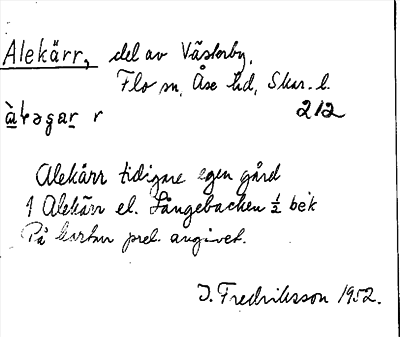 Alekärr, del av Västerby,
Flo sn, Åse hd, Skar. l.
212
Alekärr tidigare egen gård
1 Alekärr el. Långebacken ½ bek
På kartan prel. angivet.
I. Fredriksson 1952.